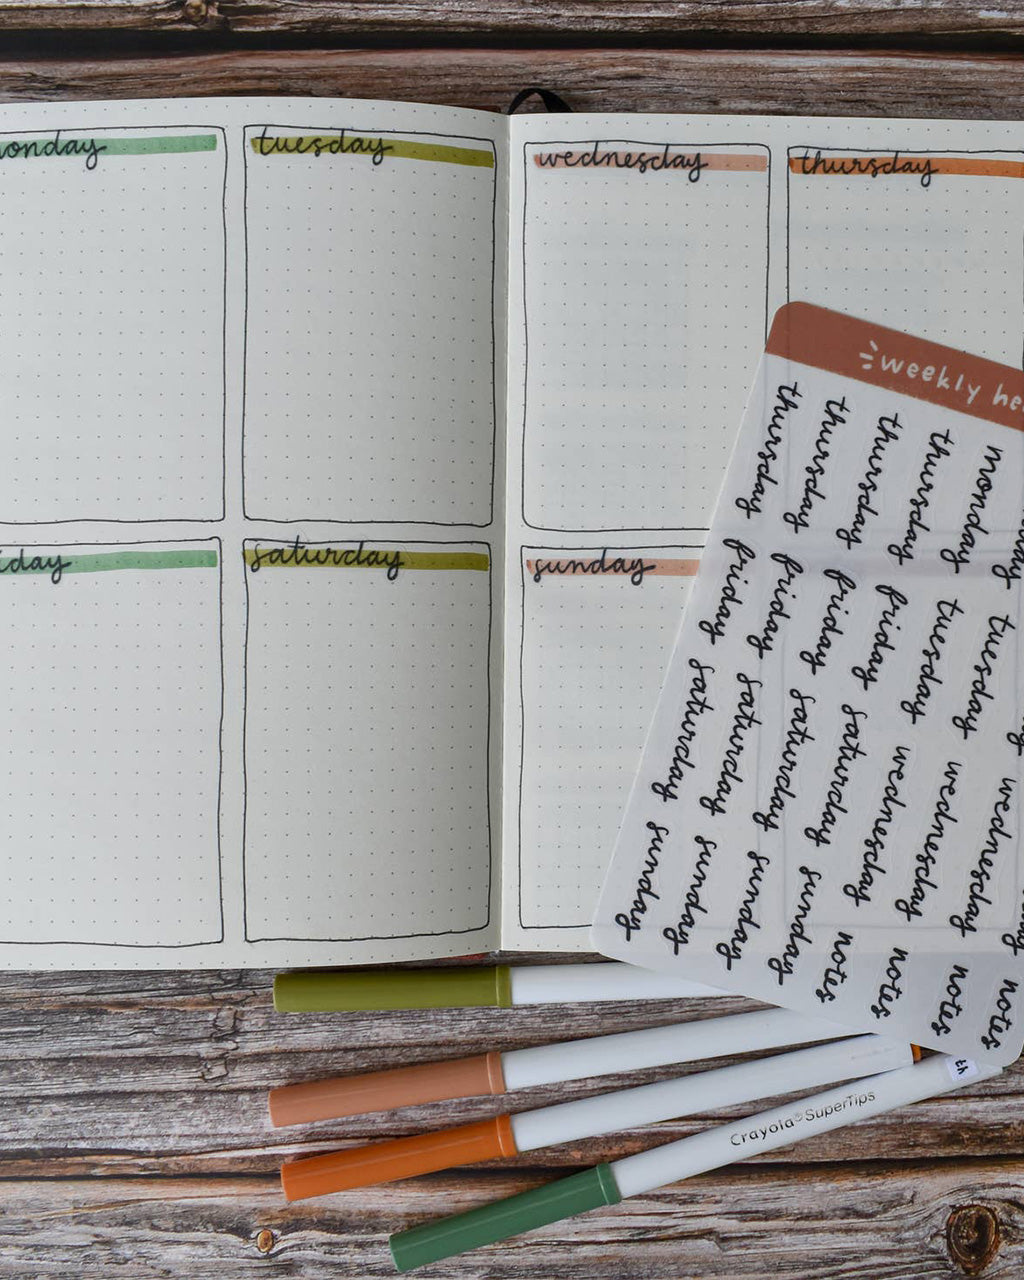 monday
tuesday
wednesday
thursday
friday
saturday
sunday
weekly
thursday
thursday
thursday
thursday
monday
friday
friday
friday
friday
tuesday
tuesday
saturday
saturday
saturday
saturday
wednesday
wednesday
wednesday
sunday
sunday
sunday
sunday
notes
notes
notes
notes
Crayola® SuperTips
47